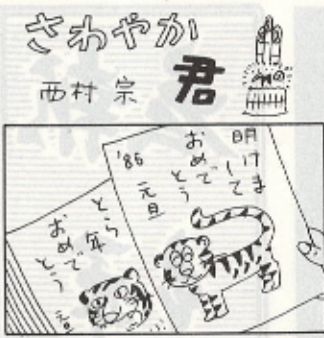 さわやか
君
西村宗
明けま
して
おめで
とう
'86 元旦
とら
年
おめで
とう